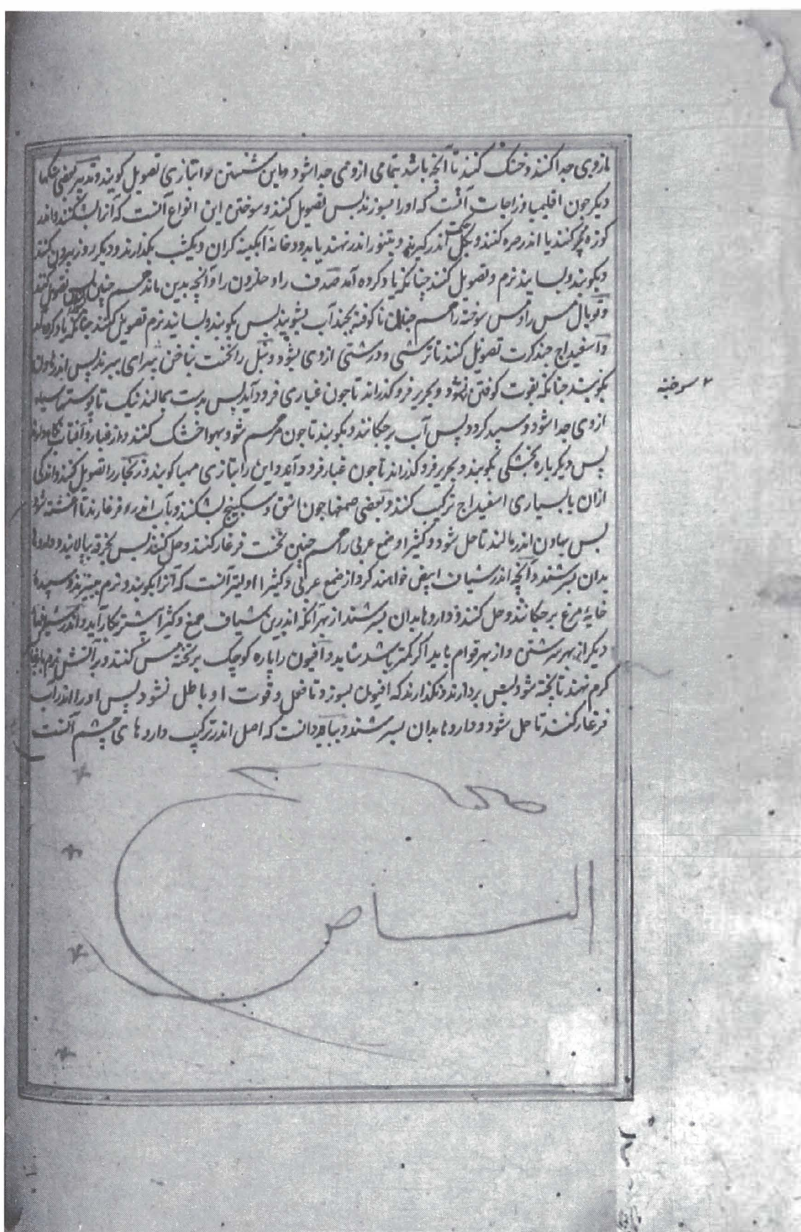 ازوی جدا کنند و خشک کنند تا آنچه باشد بتمامی ازوی جدا شود و این شستن را بتازی تصویل کویند و تدبیر بعضی
دیکر چون اقلیمیا و زاجات آنست که اورا بسوزند پس تصویل کنند و سوختن این انواع آنست که آنرا بشکنند و اندر
کوزه کنند یا اندر صره کنند و بکل اندر کیرند و بتنور اندر نهند یا بدود خانه آبکینه کران و یکشب بکذارند و دیکر روز بیرون کنند
و بکوبند و بسایند نرم و تصویل کنند چنانکه یاد کرده آمد صدف را و حلزون را و آنچه بدین ماند همچنین تصویل کنند
و توبال مس را و مس سوخته را همچنان ناکوفته بچند آب بشویند پس بکوبند و بسایند نرم تصویل کنند چنانکه یاد کرده
و اسفیداج چند کرت تصویل کنند تا ترشی و درشتی ازوی بشود و را نخست بناخن برای ببرند پس اندر هاون
بکوبند چنانکه بقوت کوفتن نشود و بحریر فرو کذرانند تا چون غباری فرود آید پس بدست بمالند نیک تا پوستها سیاه
ازوی جدا شود و سپید کردد پس آب بر چکانند و بکوبند تا چون مرهم شود بهوا خشک کنند و از غبار و آفتاب نکاه دارند
پس دیکر باره بخشکی بکوبند و بحریر فرو کذرانند تا چون غبار فرود آید و این را بتازی مهیا کویند و زنکار را تصویل کنند و اندکی
ازان با بسیاری اسفیداج ترکیب کنند و بعضی صمغها چون اشق و سکبینج بشکنند و بآب اندر فرغارند تا آغشته شود
پس بهاون اندر بمالند تا حل شود و کثیرا و صمغ عربی را همچنین نخست فرغار کنند و حل کنند پس بخرقه بپالایند و داروها
بدان بسرشند و آنچه اندر شیاف ابیض خواهند کرد از صمغ عربی و کثیرا اولیتر آنست که آنرا بکوبند و نرم ببیزند و سپیده
خایه مرغ بر چکانند و حل کنند و داروها بدان بسرشند از بهر آنکه اندرین شیاف صمغ و کثیرا بیشتر بکار آید و اندر شیافها
دیکر از بهر سرشتن و از بهر قوام باید اکر کمتر باشد شاید و افیون را پاره کوچک بر تخته مس کنند و بر آتش نرم یا بر
کرم نهند تا پخته شود پس بردارند و نکذارند که افیون بسوزد تا فعل و قوت او باطل نشود پس اورا اندر آب
فرغار کنند تا حل شود و داروها بدان بسرشند و بباید دانست که اصل اندر ترکیب داروهای چشم آنست
۲ سوخته